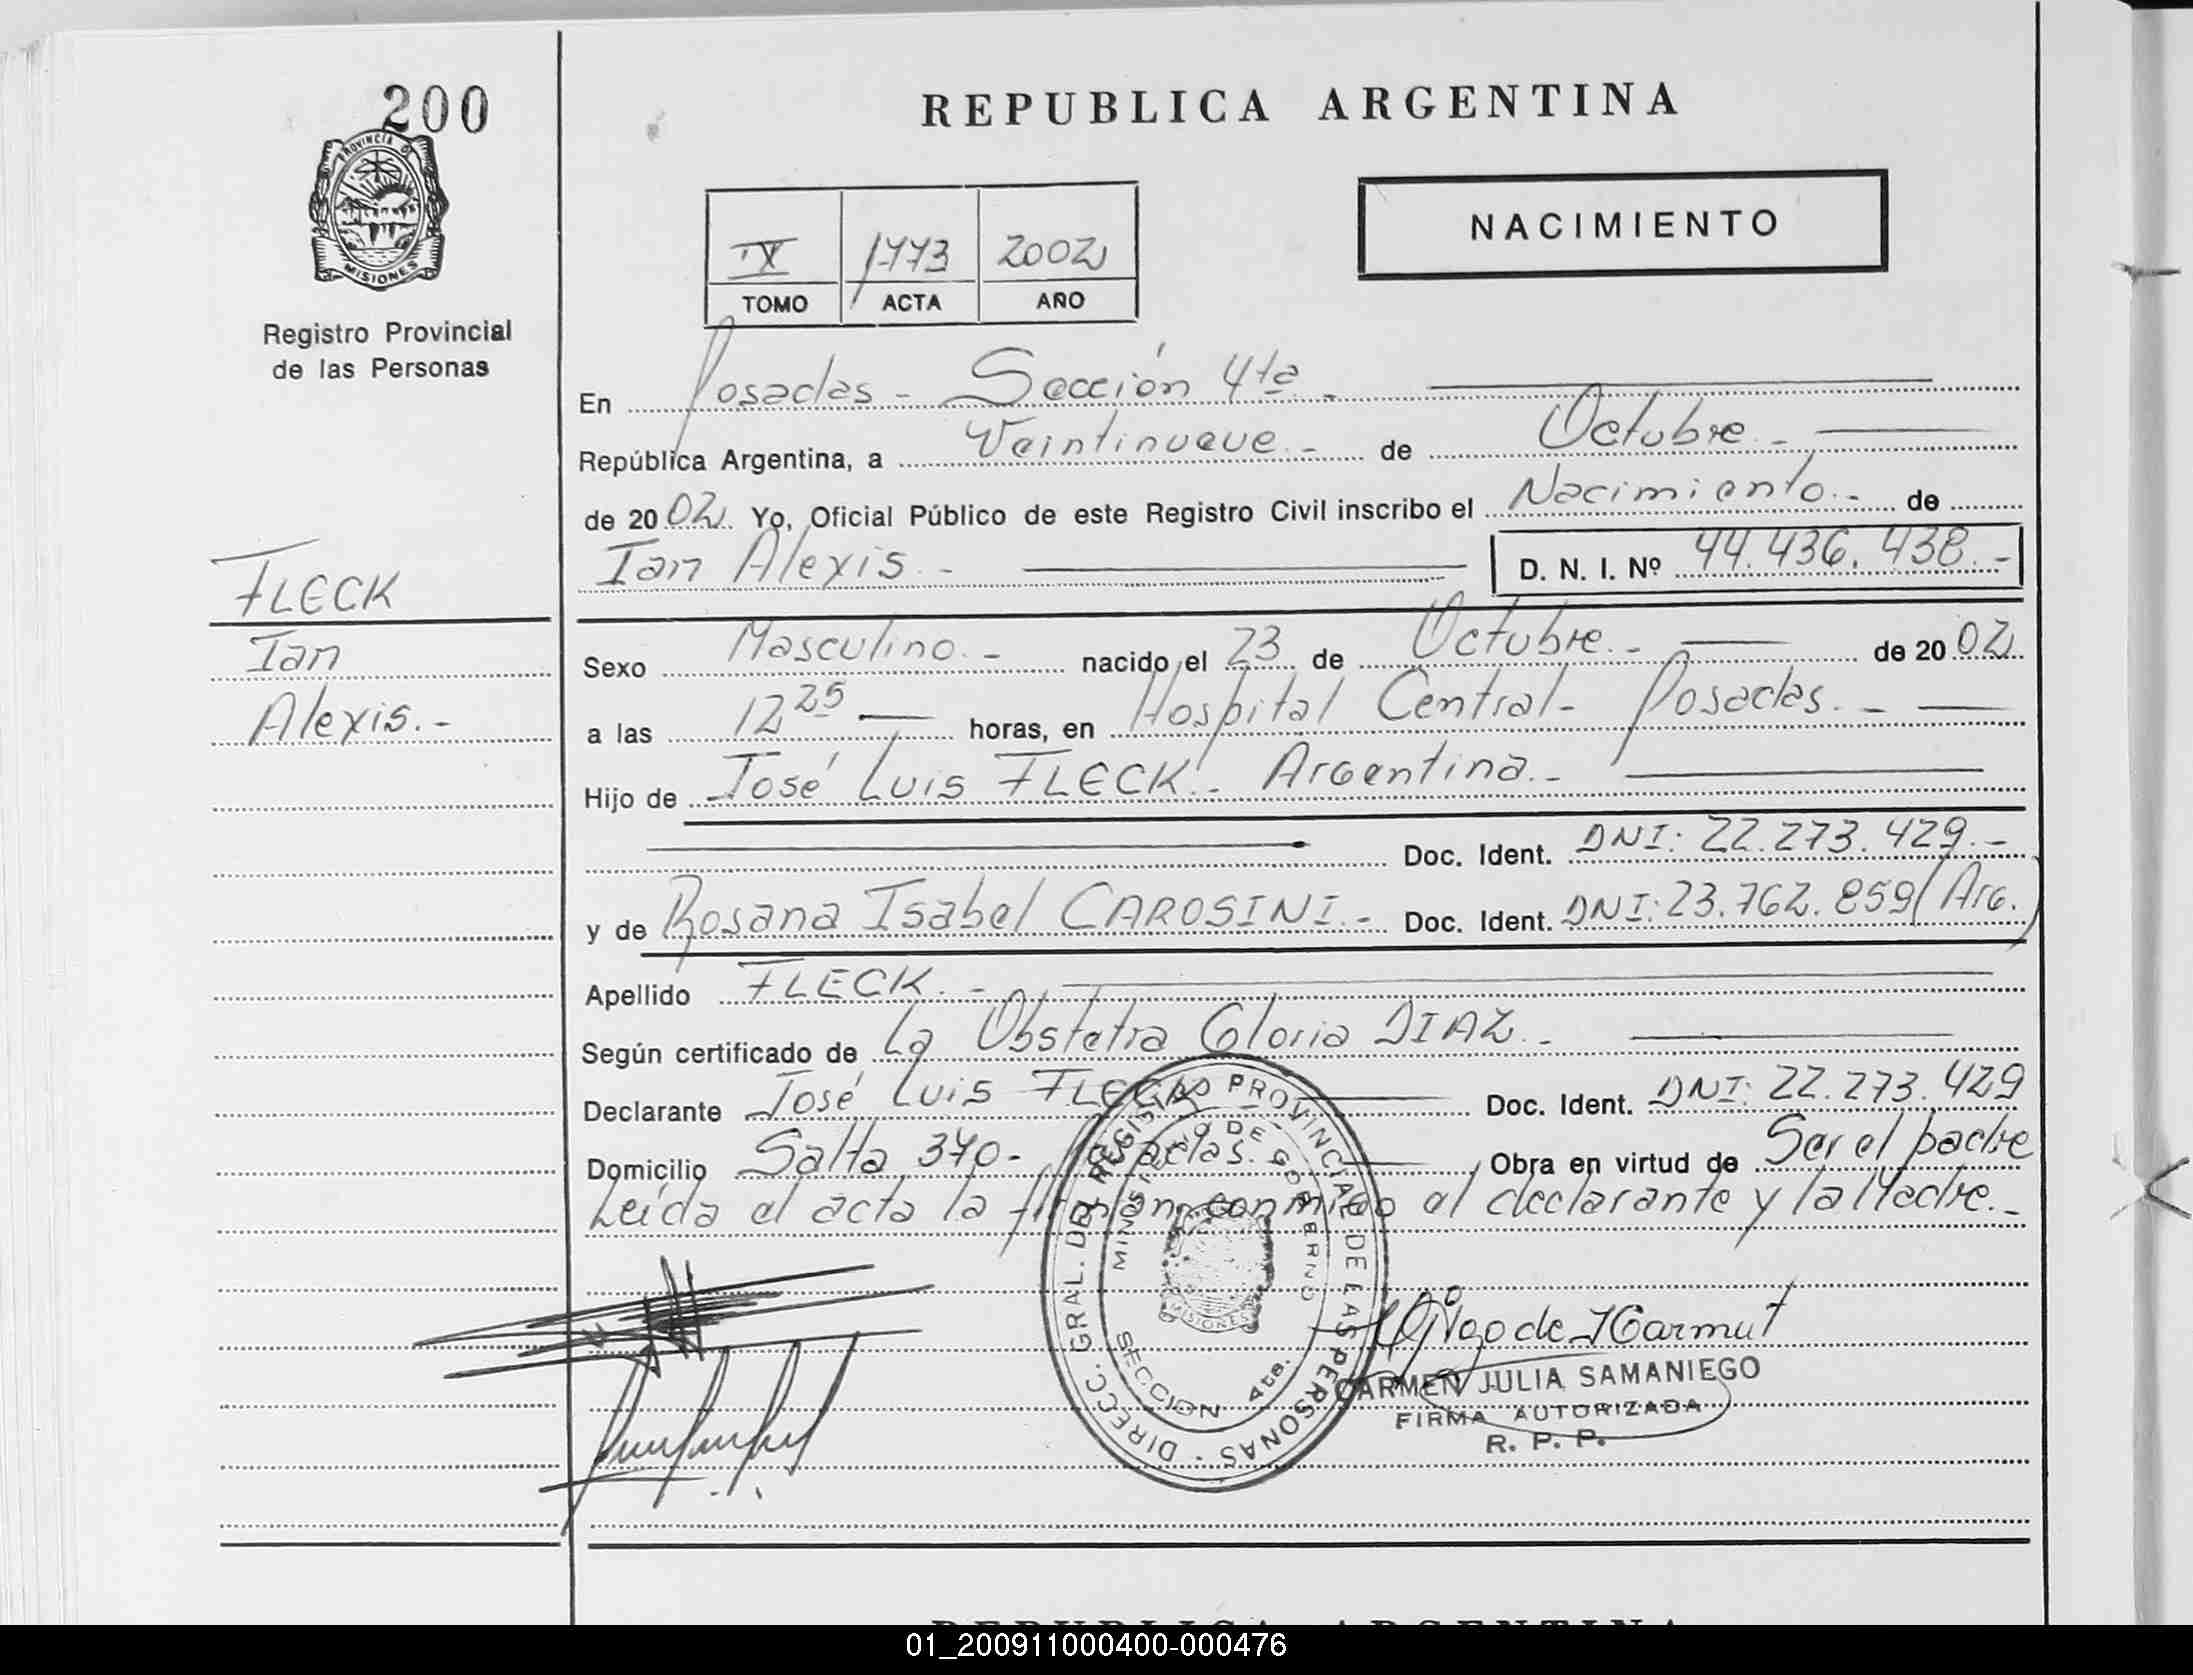 200
PROVINCIA D
MISIONES
Registro Provincial
de las Personas
FLECK
Ian
Alexis.-
REPUBLICA ARGENTINA
NACIMIENTO
IX 1773 2002
TOMO ACTA AÑO
En Posadas - Sección 4ta.-
República Argentina, a Veintinueve.- de Octubre.-
de 2002 Yo, Oficial Público de este Registro Civil inscribo el Nacimiento.- de
Ian Alexis.- D. N. I. Nº 44.436.438.-
Sexo Masculino.- nacido el 23 de Octubre.- de 2002
a las 12 25 horas, en Hospital Central- Posadas.-
Hijo de José Luis FLECK.- Argentina.-
Doc. Ident. DNI: 22.273.429.-
y de Rosana Isabel CAROSINI.- Doc. Ident. DNI: 23.762.859 (Arg.)
Apellido FLECK.-
Según certificado de La Obstetra Gloria DIAZ.-
Declarante José Luis FLECK Doc. Ident. DNI: 22.273.429
Domicilio Salta 370- Posadas. Obra en virtud de Ser el padre
Leída el acta la firman conmigo el declarante y la Madre.-
DIRECC. GRAL. DEL REGISTRO PROVINCIAL DE LAS PERSONAS
MINISTERIO DE GOBIERNO
MISIONES
SECCION 4ta.
CARMEN JULIA SAMANIEGO
FIRMA AUTORIZADA
R. P. P.
REPUBLICA ARGENTINA
01_200911000400-000476